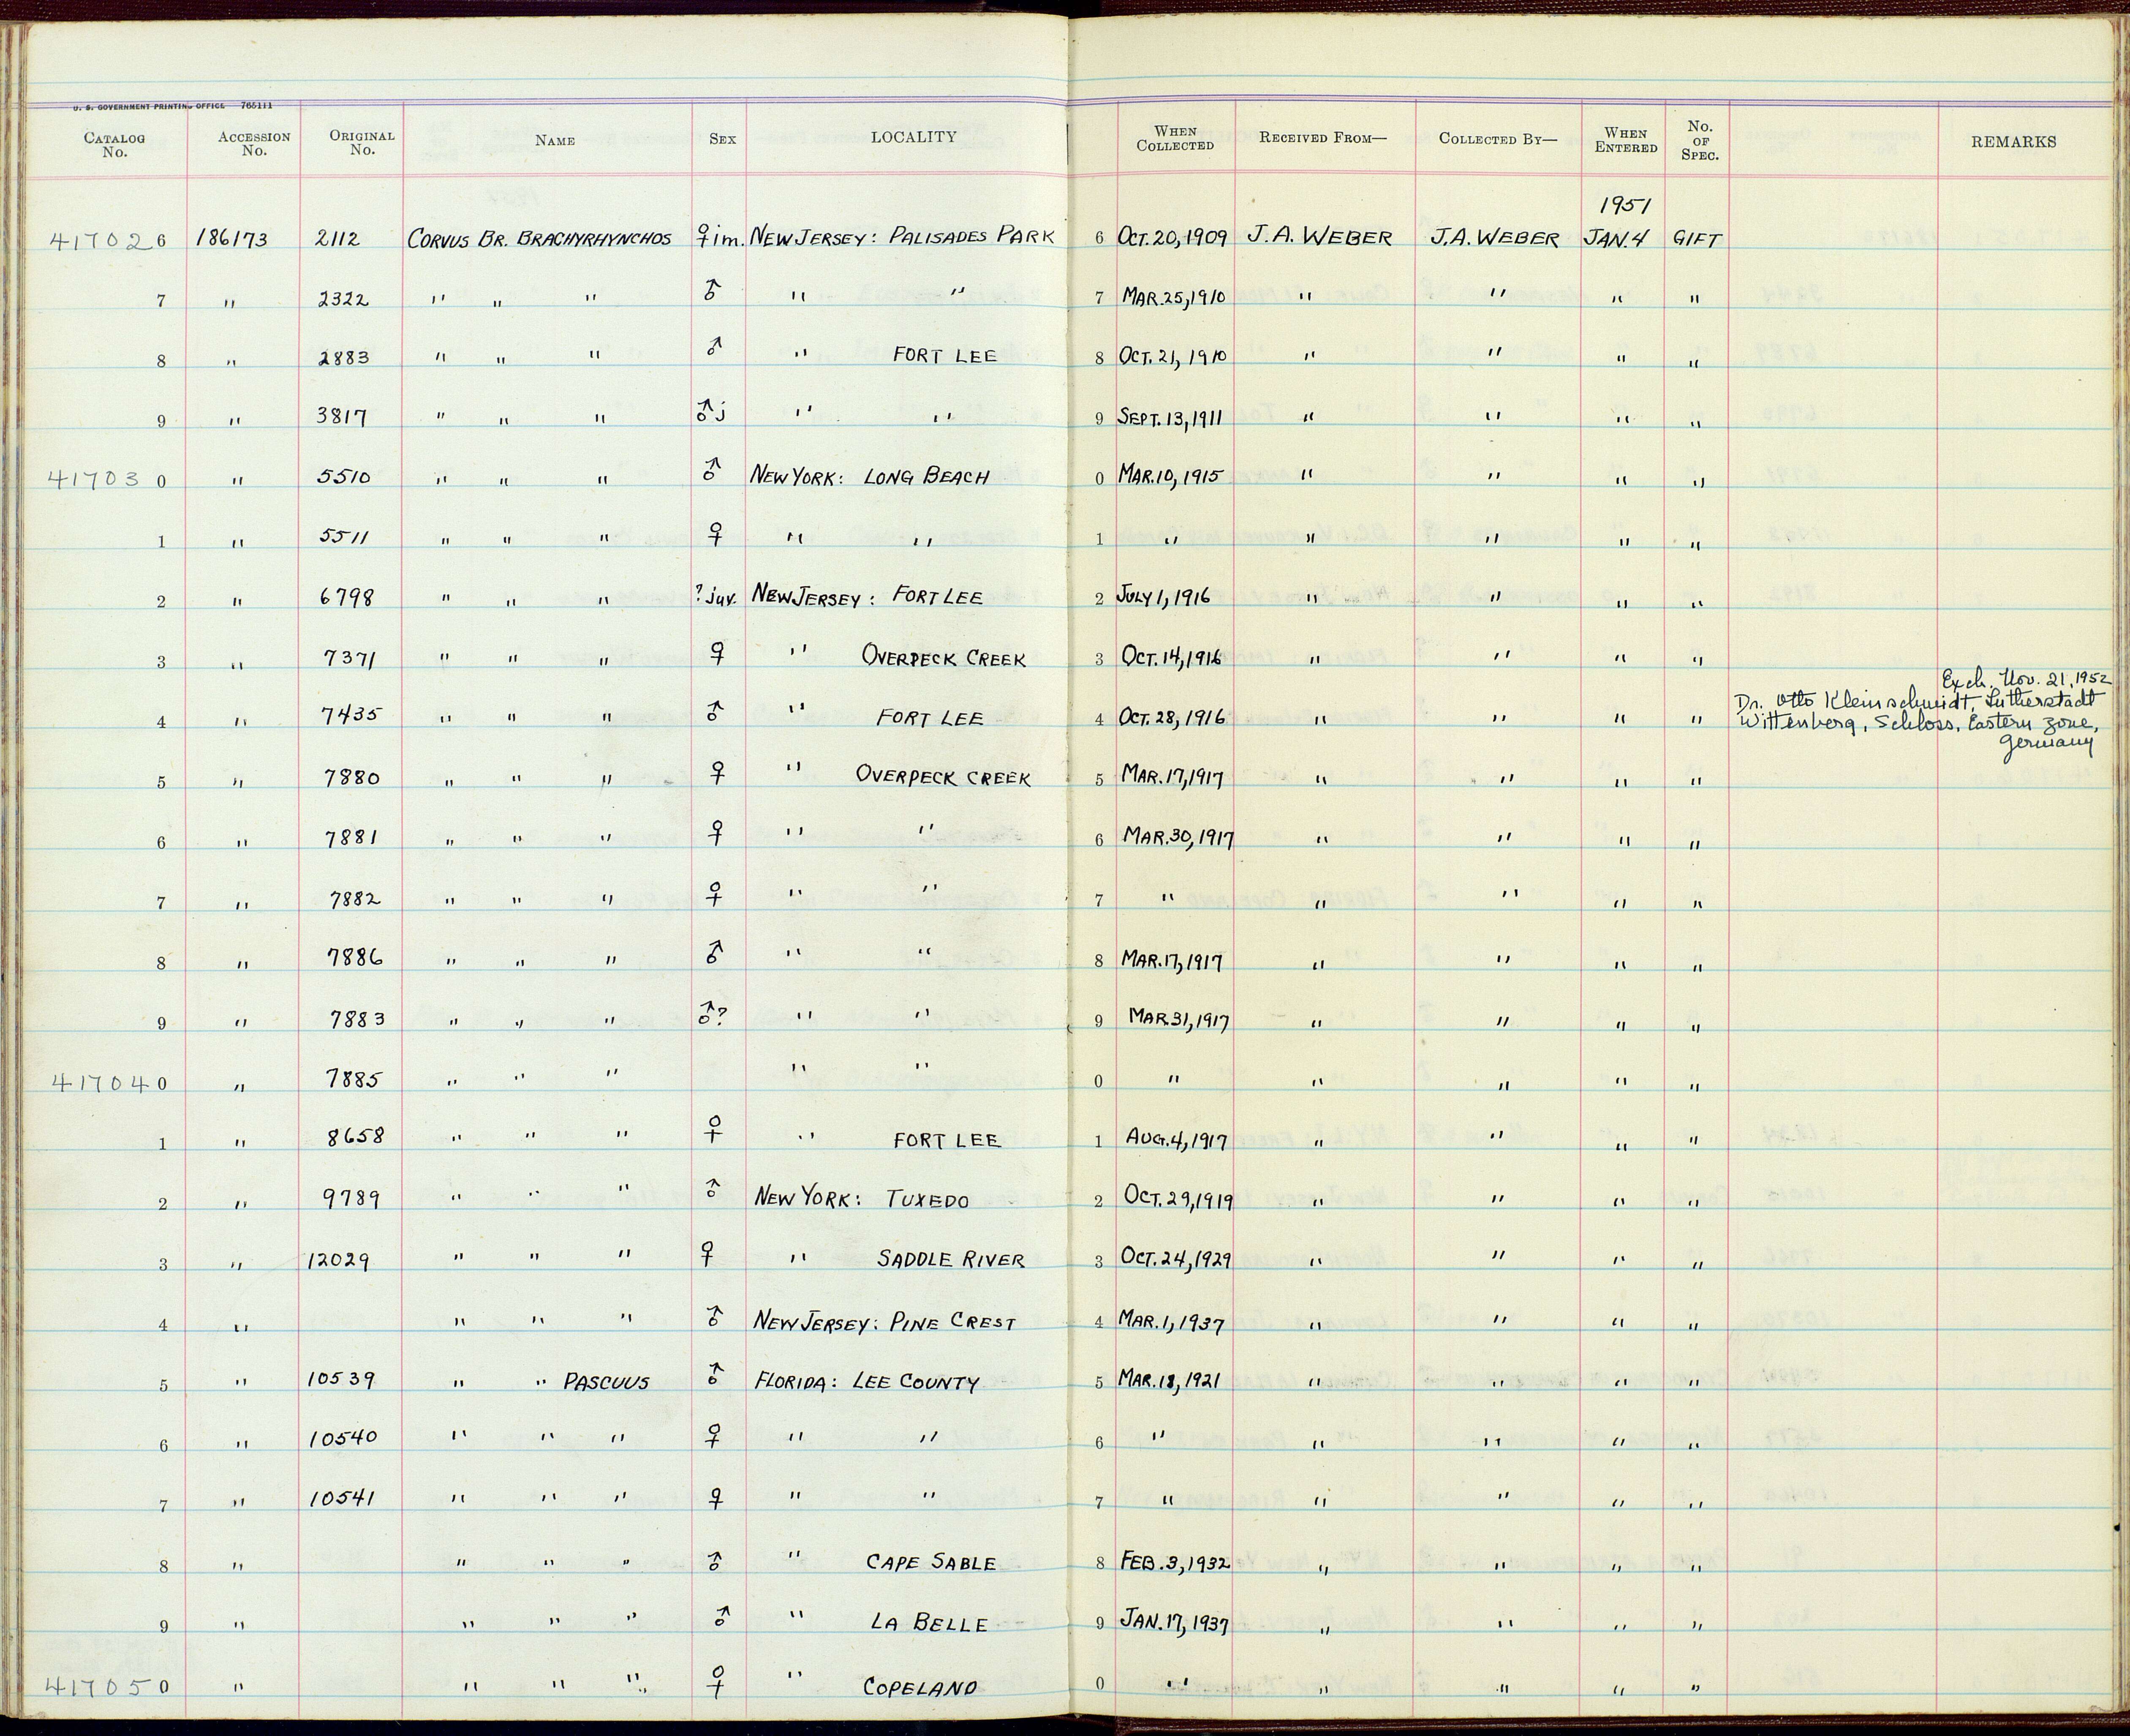 U. S. GOVERNMENT PRINTING OFFICE 765111
CATALOG No. ACCESSION No. ORIGINAL No. NAME SEX LOCALITY WHEN COLLECTED RECEIVED FROM— COLLECTED BY— WHEN ENTERED No. OF SPEC. REMARKS
1951
417026 186173 2112 CORVUS BR. BRACHYRHYNCHOS ♀ im. NEW JERSEY: PALISADES PARK 6 OCT. 20, 1909 J.A. WEBER J.A. WEBER JAN. 4 GIFT
7 " 2322 " " " ♂ " " 7 MAR. 25, 1910 " " " "
8 " 2883 " " " ♂ " FORT LEE 8 OCT. 21, 1910 " " " "
9 " 3817 " " " ♂ j " " 9 SEPT. 13, 1911 " " " "
417030 " 5510 " " " ♂ NEW YORK: LONG BEACH 0 MAR. 10, 1915 " " " "
1 " 5511 " " " ♀ " " 1 " " " " "
2 " 6798 " " " ? juv. NEW JERSEY: FORT LEE 2 JULY 1, 1916 " " " "
3 " 7371 " " " ♀ " OVERPECK CREEK 3 OCT. 14, 1916 " " " "
Exch. Nov. 21, 1952
Dr. Otto Kleinschmidt, Lutherstadt
4 " 7435 " " " ♂ " FORT LEE 4 OCT. 28, 1916 " " " " Wittenberg, Schloss, Eastern Zone,
Germany
5 " 7880 " " " ♀ " OVERPECK CREEK 5 MAR. 17, 1917 " " " "
6 " 7881 " " " ♀ " " 6 MAR. 30, 1917 " " " "
7 " 7882 " " " ♀ " " 7 " " " " "
8 " 7886 " " " ♂ " " 8 MAR. 17, 1917 " " " "
9 " 7883 " " " ♂? " " 9 MAR. 31, 1917 " " " "
417040 " 7885 " " " " " 0 " " " " "
1 " 8658 " " " ♀ " FORT LEE 1 AUG. 4, 1917 " " " "
2 " 9789 " " " ♂ NEW YORK: TUXEDO 2 OCT. 29, 1919 " " " "
3 " 12029 " " " ♀ " SADDLE RIVER 3 OCT. 24, 1929 " " " "
4 " " " " ♂ NEW JERSEY: PINE CREST 4 MAR. 1, 1937 " " " "
5 " 10539 " " PASCUUS ♂ FLORIDA: LEE COUNTY 5 MAR. 18, 1921 " " " "
6 " 10540 " " " ♀ " " 6 " " " " "
7 " 10541 " " " ♀ " " 7 " " " " "
8 " " " " ♂ " CAPE SABLE 8 FEB. 3, 1932 " " " "
9 " " " " ♂ " LA BELLE 9 JAN. 17, 1937 " " " "
417050 " " " " ♀ " COPELAND 0 " " " " "